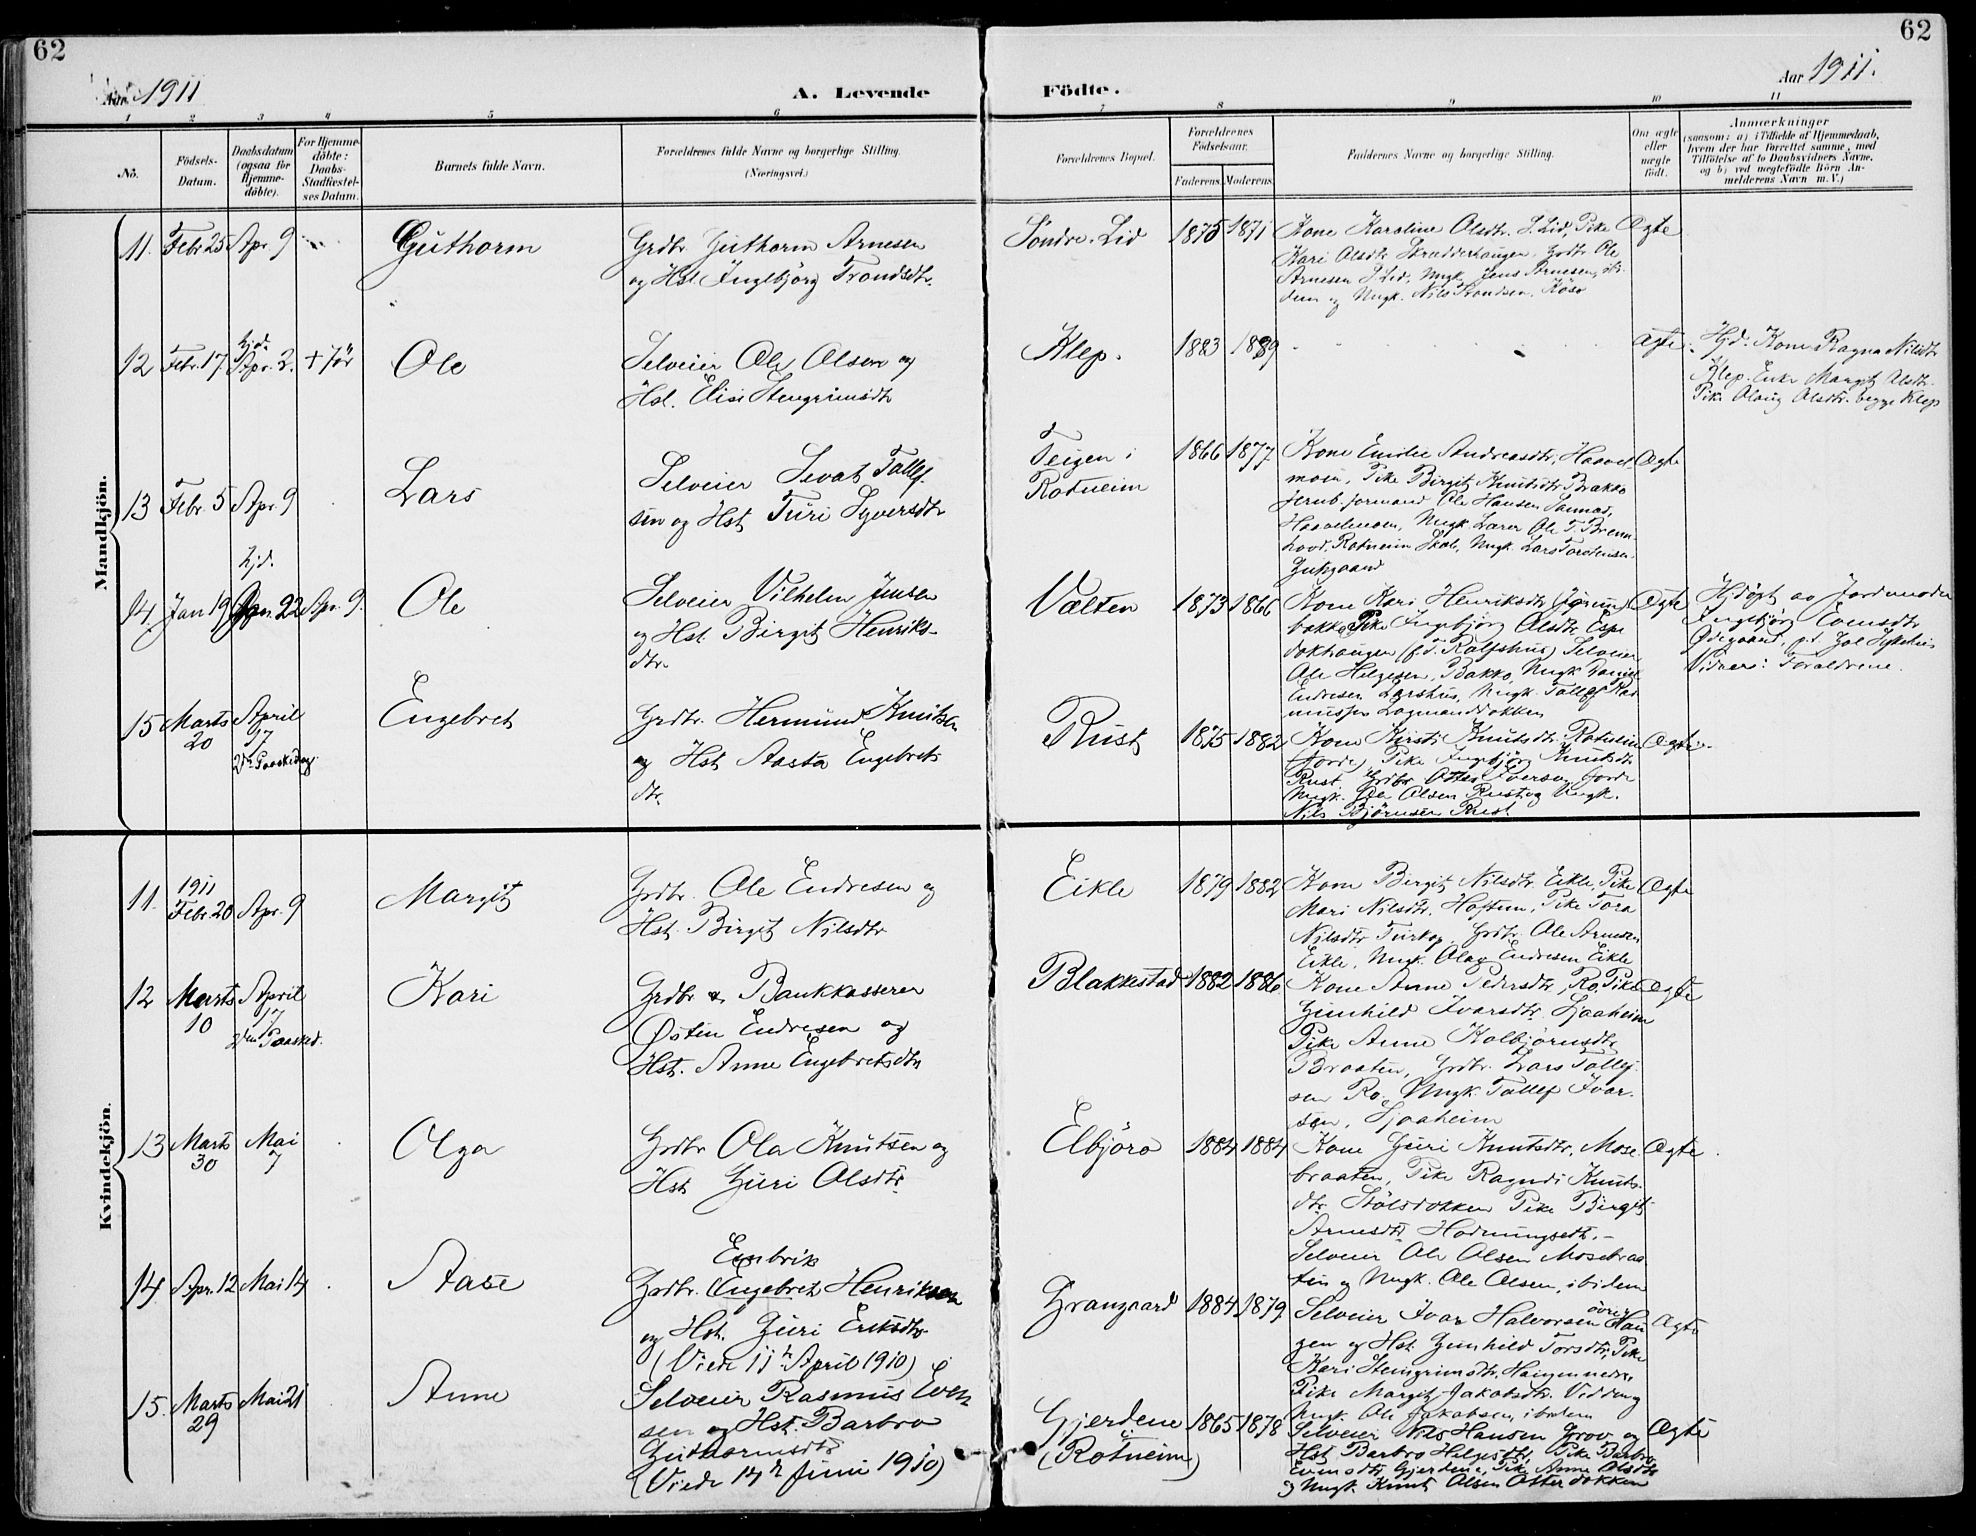 62
62
Aar 1911
A. Levende
Födte.
Aar 1911.
1 2 3 4 5 6 7 8 9 10 11
No.
Födsels-
Datum.
Daabsdatum
(ogsaa for
Hjemme-
döbte).
For Hjemme-
döbte:
Daabs-
Stadfæstel-
ses Datum.
Barnets fulde Navn.
Forældrenes fulde Navne og borgerlige Stilling.
(Næringsvei.)
Forældrenes Bopæl.
Forældrenes
Födselsaar.
Faderens.
Moderens.
Faddernes Navne og borgerlige Stilling.
Om ægte
eller
uægte
födt.
Anmærkninger
(saasom: a) i Tilfælde af Hjemmedaab,
hvem der har forrettet samme, med
Tilföielse af to Daabsvidners Navne,
og b) ved uægtefödte Börn An-
melderens Navn m. V.)
Mandkjön.
11. Febr 25 Apr. 9
Guthorm
Grdbr. Guthorm Arnesen
og Hst Ingebjörg Trondsdtr.
Söndre Lid
1875 1871
Kone Karoline Olsdtr. S. Lid, Pike
Kari Olsdtr Skrædderhaugen, Grdb. Ole
Arnesen S. Lid, Ungk. Jens Arnesen, ibi-
dem og Ungk. Nils Trondsen.
Ægte
12 Febr. 17
hjd.
Apr. 2.
+ för
Ole
Selveier Ole Olsen og
Hst. Elise Stengrimsdtr
Klep.
1883 1889
Ægte
Hjd. Kone Ragna Nilsdtr
Klep. Enke Margit Olsdtr.
Pike Olaug Olsdtr. begge Klep
13 Febr. 5 Apr. 9
Lars
Selveier Sevat Tollef-
sen og Hst Turi Syversdtr
Teigen i
Rotneim
1866 1877
Kone Emilie Andreasdtr, Haavel-
moen, Pike Birgit Knutsdtr Brakko
Jernb. formand Ole Hansen
Haavelmoen, Ungk. Lærer Ole T. Brenn-
hovd, Rotneim Skole, Ungk. Lars Torstensen
Ægte
14 Jan 19
hjd.
Jan. 22 Apr. 9.
Ole
Selveier Vilhelm Jensen
og Hst. Birgit Henriks-
dtr.
Vælten
1873 1866
Kone Kari Henriksdtr.
bakke, Pike Ingebjörg Olsdtr. Espe-
dokhaugen (f. d. Rolfshus) Selveier
Ole Helgesen, Bakko, Ungk
Endresen Larshus, Ungk. Tollef Ras-
mussen Lagmanddokken
Ægte
Hjdöpt av Jordmoder
Ingebjörg Evensdtr
Ödegaard, p. t. Gol
Vidner: Forældrene.
15 Marts
20
April
17
2den Paaskedag
Engebret
Grdbr. Hermund Knutsen
og Hst Aasta Engebrets
dtr.
Rust
1875 1882
Kone Kirsti Knutsdtr. Rotneim
(Jorde) Pike Ingebjörg Knutsdtr
Rust, Grdbr. Otter Iversen Jorde
Ungk. Ole Olsen Rust og Ungk.
Nils Björnsen Rust
Ægte.
Kvindekjön.
11.
1911
Febr. 20 Apr. 9
Margit
Grdbr. Ole Endresen og
Hst. Birgit Nilsdtr
Eikle
1879 1882
Kone Birgit Nilsdtr. Eikle, Pike
Mari Nilsdtr. Hoftun, Pike Tora
Nilsdtr Turhag, Grdbr. Ole Arnesen
Eikle, Ungk. Olav Endresen Eikle
Ægte
12 Marts
10
April
17
2den Paasked.
Kari
Grdbr & Bankkasserer
Østen Endresen og
Hst. Anne Engebretsdtr
Blakkestad
1882 1886
Kone Anne Pedersdtr, Ro, Pike
Gunhild Ivarsdtr. Sjaaheim
Pike Anne Kolbjörnsdtr
Braaten, Grdbr. Lars Tollef-
sen Ro, Ungk. Tollef Ivar-
sen, Sjaaheim
Ægte
13 Marts
30
Mai
7
Olga
Grdbr Ola Knutsen og
Hst Guri Olsdtr
Elbjöro
1884 1884
Kone Guri Knutsdtr, Mose-
braaten, Pike Ragndi Knuts-
dtr. Stölsdokken Pike Birgit
Arnesdtr. Hodnungseth. -
Selveier Ole Olsen Mosebraa-
ten og Ungk. Ole Olsen, ibidem
Ægte
14 Apr. 12 Mai 14
Aase
Embrik
Grdbr. (Engebret Henriksen
og Hst. Guri Eriksdtr.
(Viede 11te April 1910)
Grangaard
1884 1879
Selveier Ivar Halvorsen övre Hau-
gen og Hst. Gunhild Torsdtr, Pike
Kari Stengrimsdtr. Haugen nedre
Pike Margit Jakobsdtr.
Ungk. Ole Jakobsen, ibidem
Ægte
15. Marts
29
Mai 21
Anne
Selveier Rasmus Even-
sen og Hst. Barbro
Guthormsdtr
(Viede 14de Juni 1910)
Gjerdene
(Rotneim)
1865 1878
Selveier Nils Hansen Grov og
Hst Barbro Helgesdtr, Pike Barbro
Evensdtr, Gjerdene, Pike Anne Olsdtr
og Ungk. Knut Olsen Otterdokken
Ægte